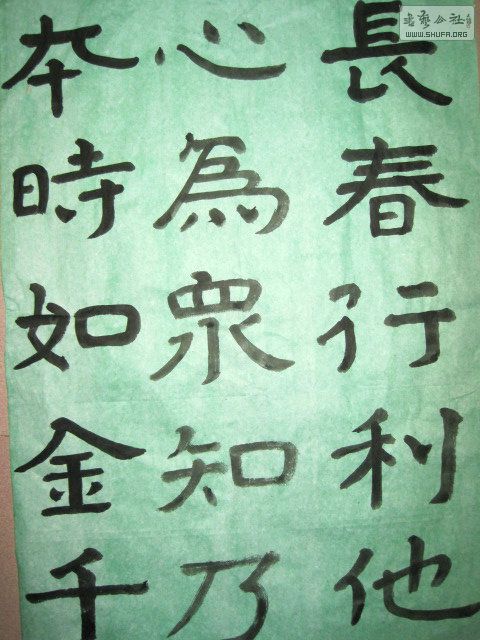 長春行利他
心為衆知乃
本時如金千
書藝公社
WWW.SHUFA.ORG